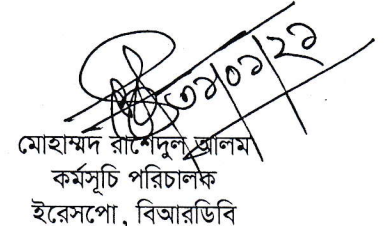 ৩১/০১/২১
মোহাম্মদ রাশেদুল আলম
কর্মসূচি পরিচালক
ইরেসপো, বিআরডিবি